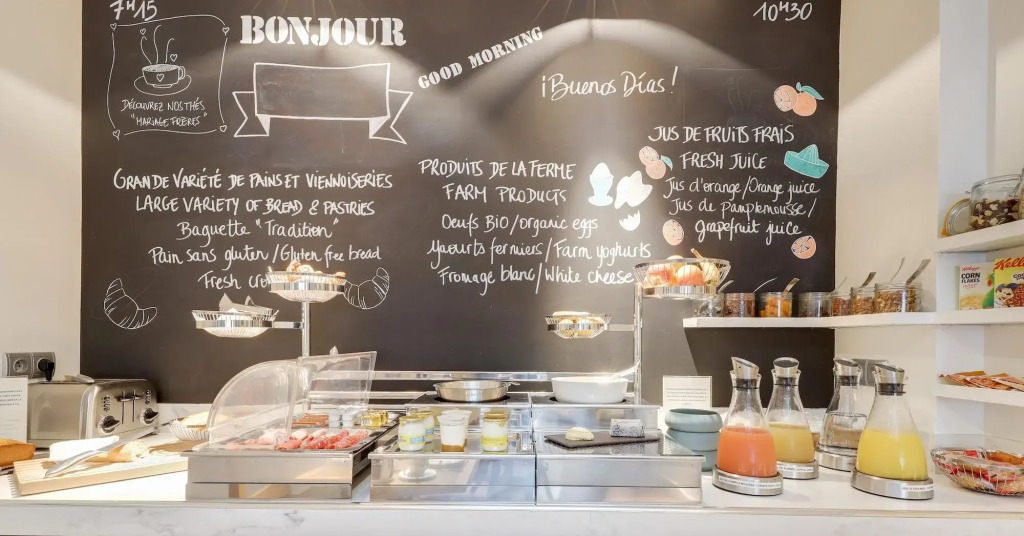 7H15
10H30
BONJOUR
GOOD MORNING
¡Buenos Días!
DÉCOUVREZ NOS THÉS
"MARIAGE FRÈRES"
GRANDE VARIÉTÉ DE PAINS ET VIENNOISERIES
LARGE VARIETY OF BREAD & PASTRIES
Baguette "Tradition"
Pain sans gluten/Gluten free bread
Fresh
PRODUITS DE LA FERME
FARM PRODUCTS
Oeufs BIO/organic eggs
Yaourts fermiers/Farm yoghurts
Fromage blanc/White cheese
JUS DE FRUITS FRAIS
FRESH JUICE
Jus d'orange/Orange juice
Jus de pamplemousse/
grapefruit juice
CORN
FLAKES